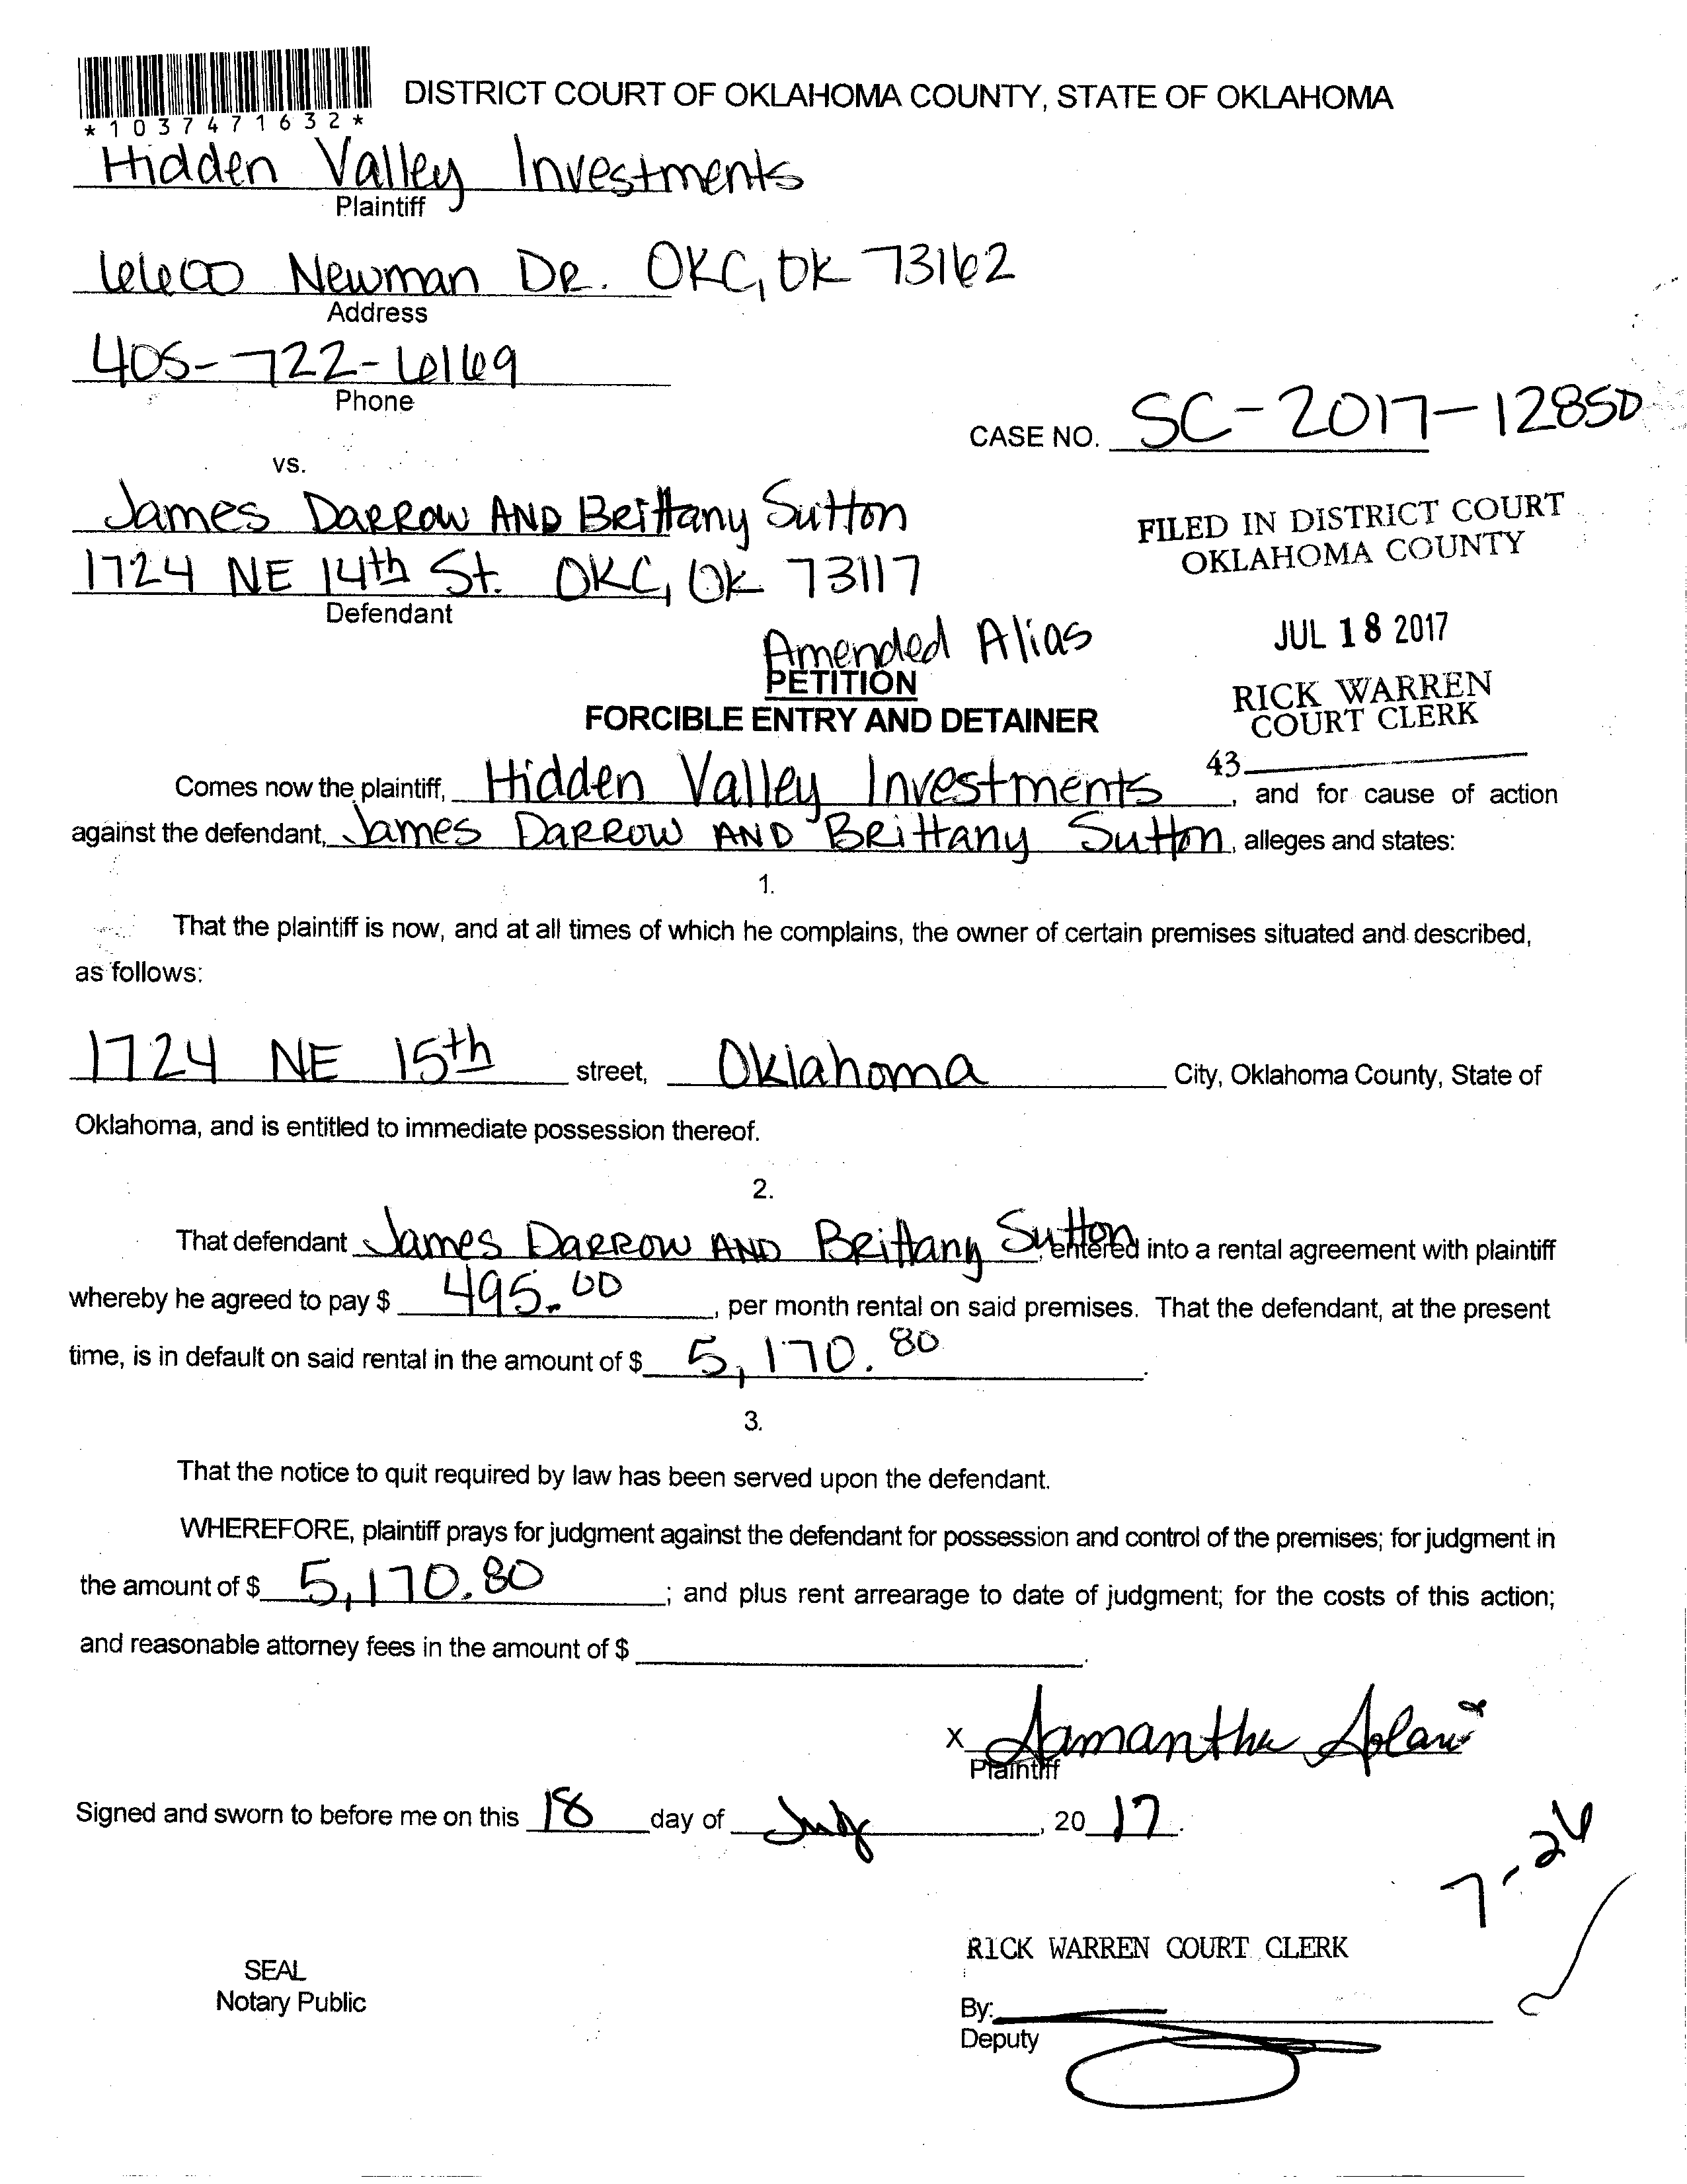 DISTRICT COURT OF OKLAHOMA COUNTY, STATE OF OKLAHOMA
*1037471632*
Hidden Valley Investments
Plaintiff
6600 Newman DR. OKC, OK 73162
Address
405-722-6169
Phone
CASE NO. SC-2017-12850
vs.
James DARROW AND BRittany Sutton
1724 NE 14th St. OKC, OK 73117
Defendant
FILED IN DISTRICT COURT
OKLAHOMA COUNTY
JUL 18 2017
RICK WARREN
COURT CLERK
43
Amended Alias
PETITION
FORCIBLE ENTRY AND DETAINER
Comes now the plaintiff, Hidden Valley Investments, and for cause of action
against the defendant, James DARROW AND BRittany Sutton, alleges and states:
1.
That the plaintiff is now, and at all times of which he complains, the owner of certain premises situated and described,
as follows:
1724 NE 15th street, Oklahoma City, Oklahoma County, State of
Oklahoma, and is entitled to immediate possession thereof.
2.
That defendant James DARROW AND BRittany Sutton, entered into a rental agreement with plaintiff
whereby he agreed to pay $ 495.00, per month rental on said premises. That the defendant, at the present
time, is in default on said rental in the amount of $ 5,170.80.
3.
That the notice to quit required by law has been served upon the defendant.
WHEREFORE, plaintiff prays for judgment against the defendant for possession and control of the premises; for judgment in
the amount of $ 5,170.80; and plus rent arrearage to date of judgment; for the costs of this action;
and reasonable attorney fees in the amount of $ .
X Samantha
Plaintiff
Signed and sworn to before me on this 18 day of July, 2017.
7-26
RICK WARREN COURT CLERK
SEAL
Notary Public
By:
Deputy